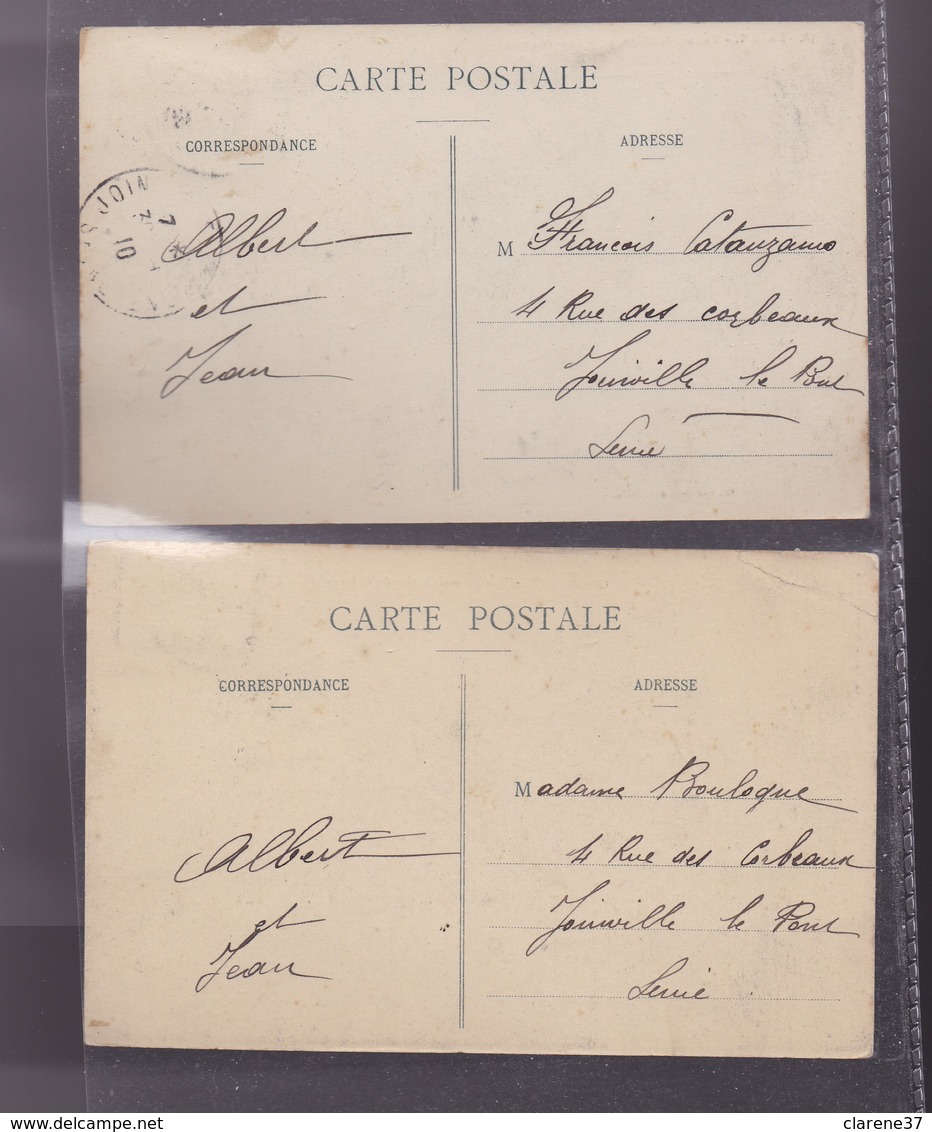 CARTE POSTALE
CORRESPONDANCE
ADRESSE
JOIN
7
10
Albert
et
Jean
M François Catanzano
4 Rue des corbeaux
Joinville le Pont
Seine
CARTE POSTALE
CORRESPONDANCE
ADRESSE
Albert
et
Jean
Madame Boulogne
4 Rue des Corbeaux
Joinville le Pont
Seine
clarene37